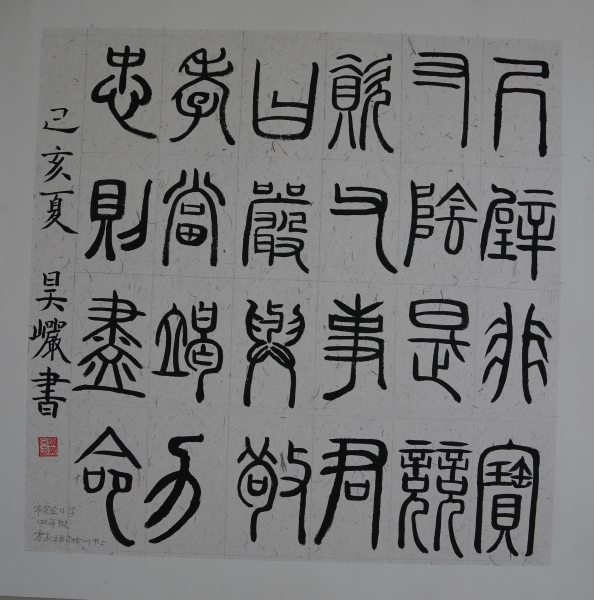 尺璧非寶
寸陰是競
資父事君
曰嚴與敬
孝當竭力
忠則盡命
己亥夏 昊巗書
四年级